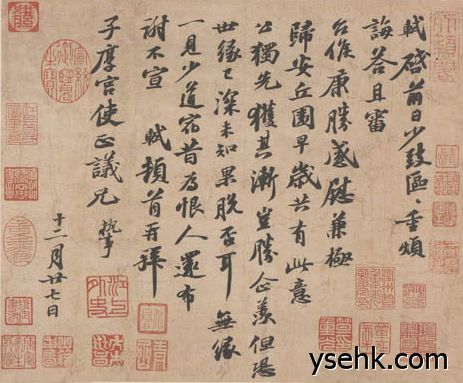 軾啓前日少致區〻重煩
誨答且審
台候康勝感慰兼極
歸安丘園早歲共有此意
公獨先獲其漸豈勝企羨但恐
世緣已深未知果脫否耳 無緣
一見少道宿昔為恨人還布
謝不宣 軾頓首再拜
子厚宮使正議兄 執事
十二月廿七日
ysehk.com